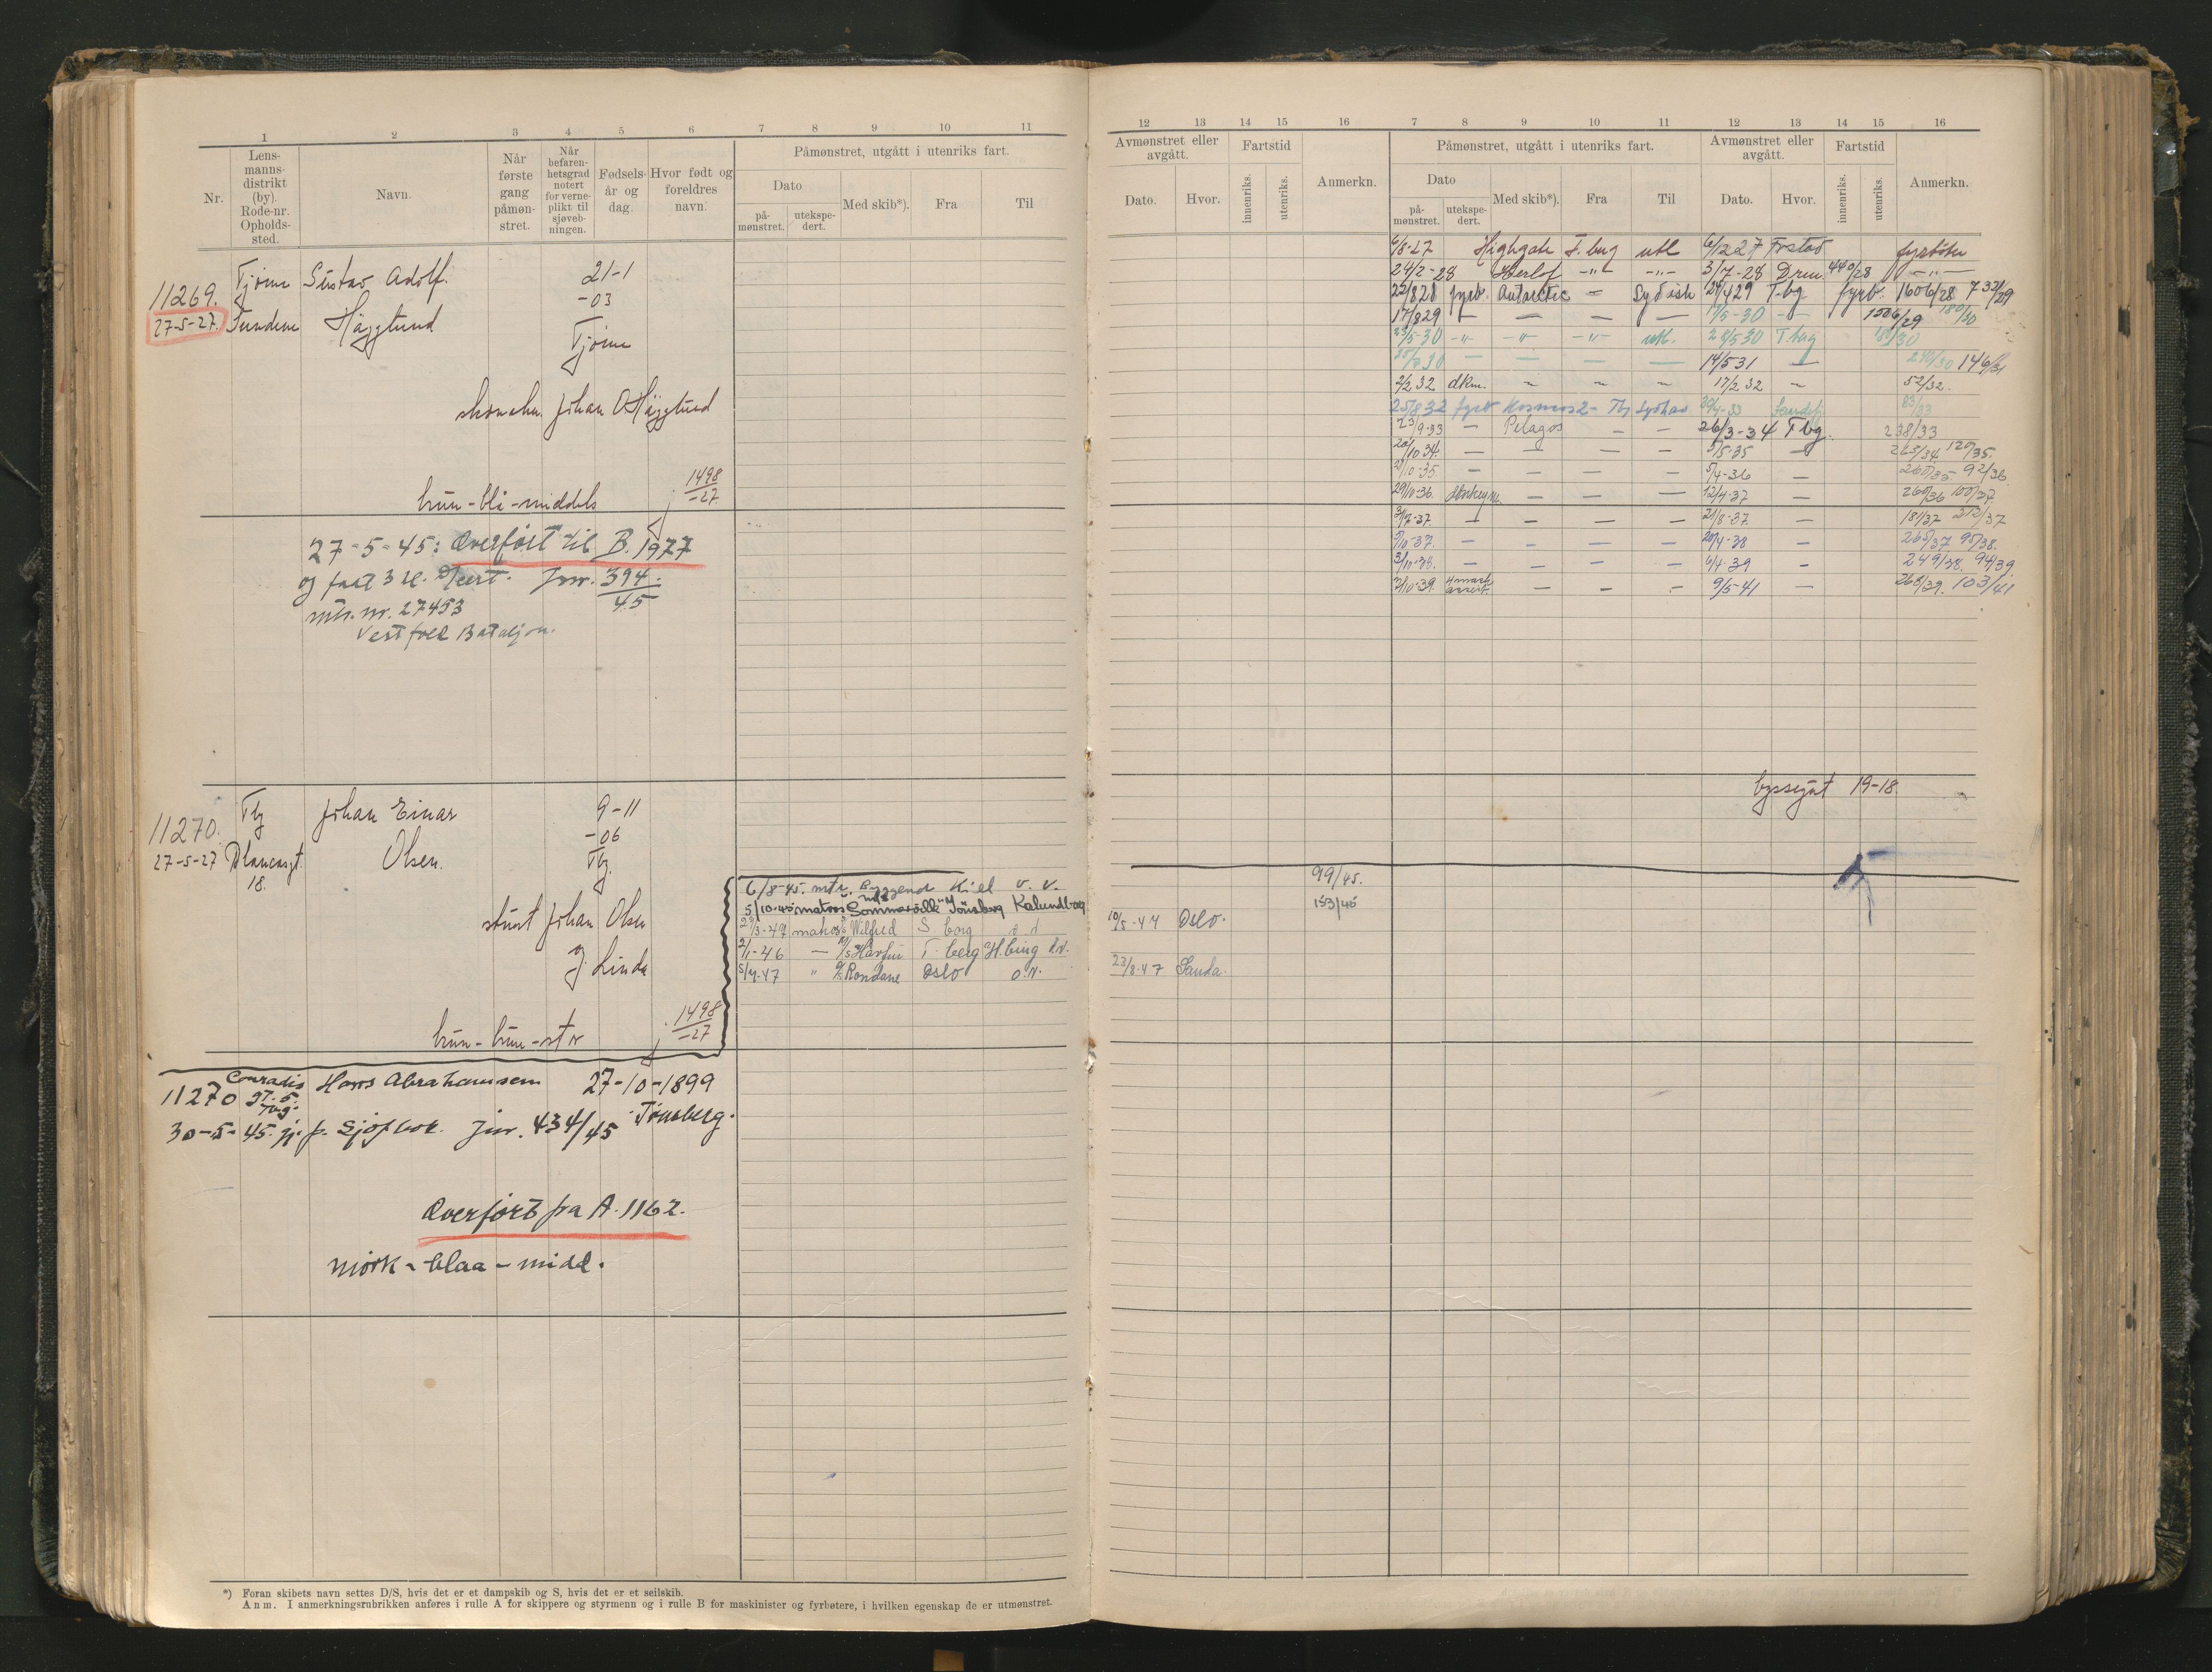 1 2 3 4 5 6 7 8 9 10 11
Nr.
Lens-
manns-
distrikt
(by).
Rode-nr.
Opholds-
sted.
Navn.
Når
første
gang
påmøn-
stret.
Når
befaren-
hetsgrad
notert
for verne-
plikt til
sjøveb-
ningen.
Fødsels-
år og
dag.
Hvor født og
foreldres
navn.
Påmønstret, utgått i utenriks fart.
Dato
på-
mønstret.
utekspe-
dert.
Med skib*).
Fra
Til
11269. Tjøme Gustav Adolf. 21-1
-03
27-5-27. Hägglund
Tjøme
Johan O Hägglund
brun-blå-middels 1498
-27
27-5-45: Overført til B. 1977
og fått Jnr. 394
45
mtr. nr. 27453
Vestfold Bataljon.
11270. Tbg Johan Einar 9-11
-06
27-5-27 Olsen. Tbg.
18.
Johan Olsen
og Linda
brun-brun-str 1498
-27
6/8-45. mtr. Byggend Kiel v. v.
5/10-45 matros Sommervilk Tønsberg Kalundborg
29/3-47 matros Wilfred S. borg
2/1-46 — Havfru T. berg H.bing
5/4-47 " Rondane Oslo
11270 Conradis Hans Abrahamsen 27-10-1899
gt. 5.
Tbg.
30-5-45. p. Sjøfbok. Jnr. 434/45 Tønsberg.
Overført fra A. 1162.
mørk - blaa - midd.
*) Foran skibets navn settes D/S, hvis det er et dampskib og S, hvis det er et seilskib.
Anm. I anmerkningsrubrikken anføres i rulle A for skippere og styrmenn og i rulle B for maskinister og fyrbøtere, i hvilken egenskap de er utmønstret.
12 13 14 15 16 7 8 9 10 11 12 13 14 15 16
Avmønstret eller
avgått.
Dato.
Hvor.
Fartstid
innenriks.
utenriks.
Anmerkn.
Påmønstret, utgått i utenriks fart.
Dato
på-
mønstret.
utekspe-
dert.
Med skib*).
Fra
Til
Avmønstret eller
avgått.
Dato.
Hvor.
Fartstid
innenriks.
utenriks.
Anmerkn.
6/8-27 Highgate utl 6/2 27 Frstad fyrbøter
24/2-28 Herlof -"- -"- 3/7-28 Drm. 440/28 -"-
22/8 28 fyrb. Antarctic — Sydish 29/4 29 T.bg fyrb. 1606/28 732/29
17/8 29 — — — — 17/5-30 — 1506/29 180/30
23/5-30 -"- -"- -"- utl. 28/5 30 T.berg
— — — — 14/5 31 — 146/31
2/2 32 dkm. ~ ~ ~ 17/2 32 ~ 52/32.
25/8 32 fyrb Kosmos 2 - Tbg Sydhav 30/4-33 Sandefj 83/33
23/9-33 — Pelagos — — 26/3-34 T bg. 238/33
20/10 34. — — — — 5/5-35 — 265/34 120/35.
2/10-35. — — — — 5/4-36 — 92/36
29/10-36. — — — 12/4-37 — 260/36 100/37
3/7-37. — — — — 21/8-37 — 181/37 212/37
5/10-37. — — — — 20/4-38 — 265/37 95/38.
3/10-38. — — — — 6/4-39 — 249/38. 94/39.
3/10-39. — — — 9/5-41 — 268/39. 103/41
byssegut 19-18.
99/45.
153/45
10/5-47 Oslo.
23/8-47 Sauda.